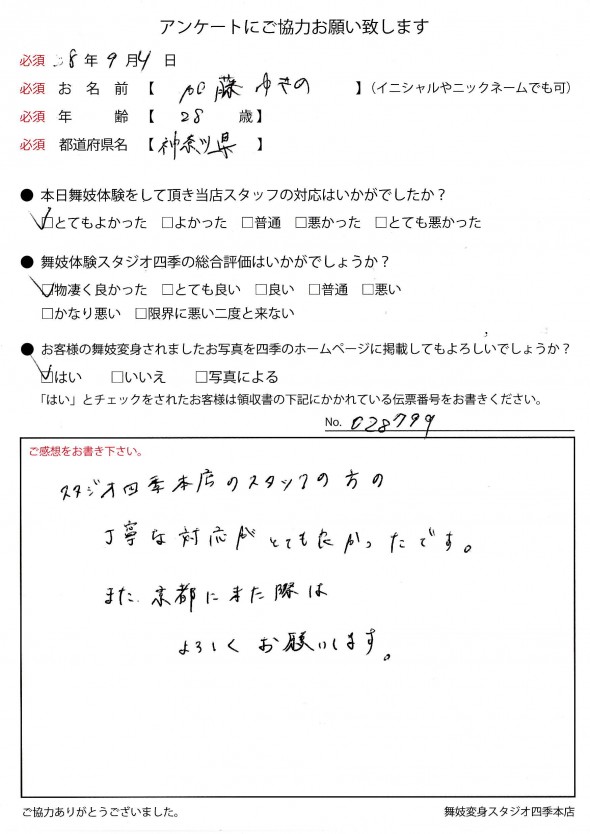 アンケートにご協力お願い致します
必須 28年9月4日
必須 お名前【 加藤ゆきの 】（イニシャルやニックネームでも可）
必須 年齢【 28 歳】
必須 都道府県名【神奈川県 】
● 本日舞妓体験をして頂き当店スタッフの対応はいかがでしたか？
☑とてもよかった □よかった □普通 □悪かった □とても悪かった
● 舞妓体験スタジオ四季の総合評価はいかがでしょうか？
☑物凄く良かった □とても良い □良い □普通 □悪い
□かなり悪い □限界に悪い二度と来ない
● お客様の舞妓変身されましたお写真を四季のホームページに掲載してもよろしいでしょうか？
☑はい □いいえ □写真による
「はい」とチェックをされたお客様は領収書の下記にかかれている伝票番号をお書きください。
No. 028799
ご感想をお書き下さい。
スタジオ四季本店のスタッフの方の
丁寧な対応がとても良かったです。
また、京都に来た際は
よろしくお願いします。
ご協力ありがとうございました。
舞妓変身スタジオ四季本店